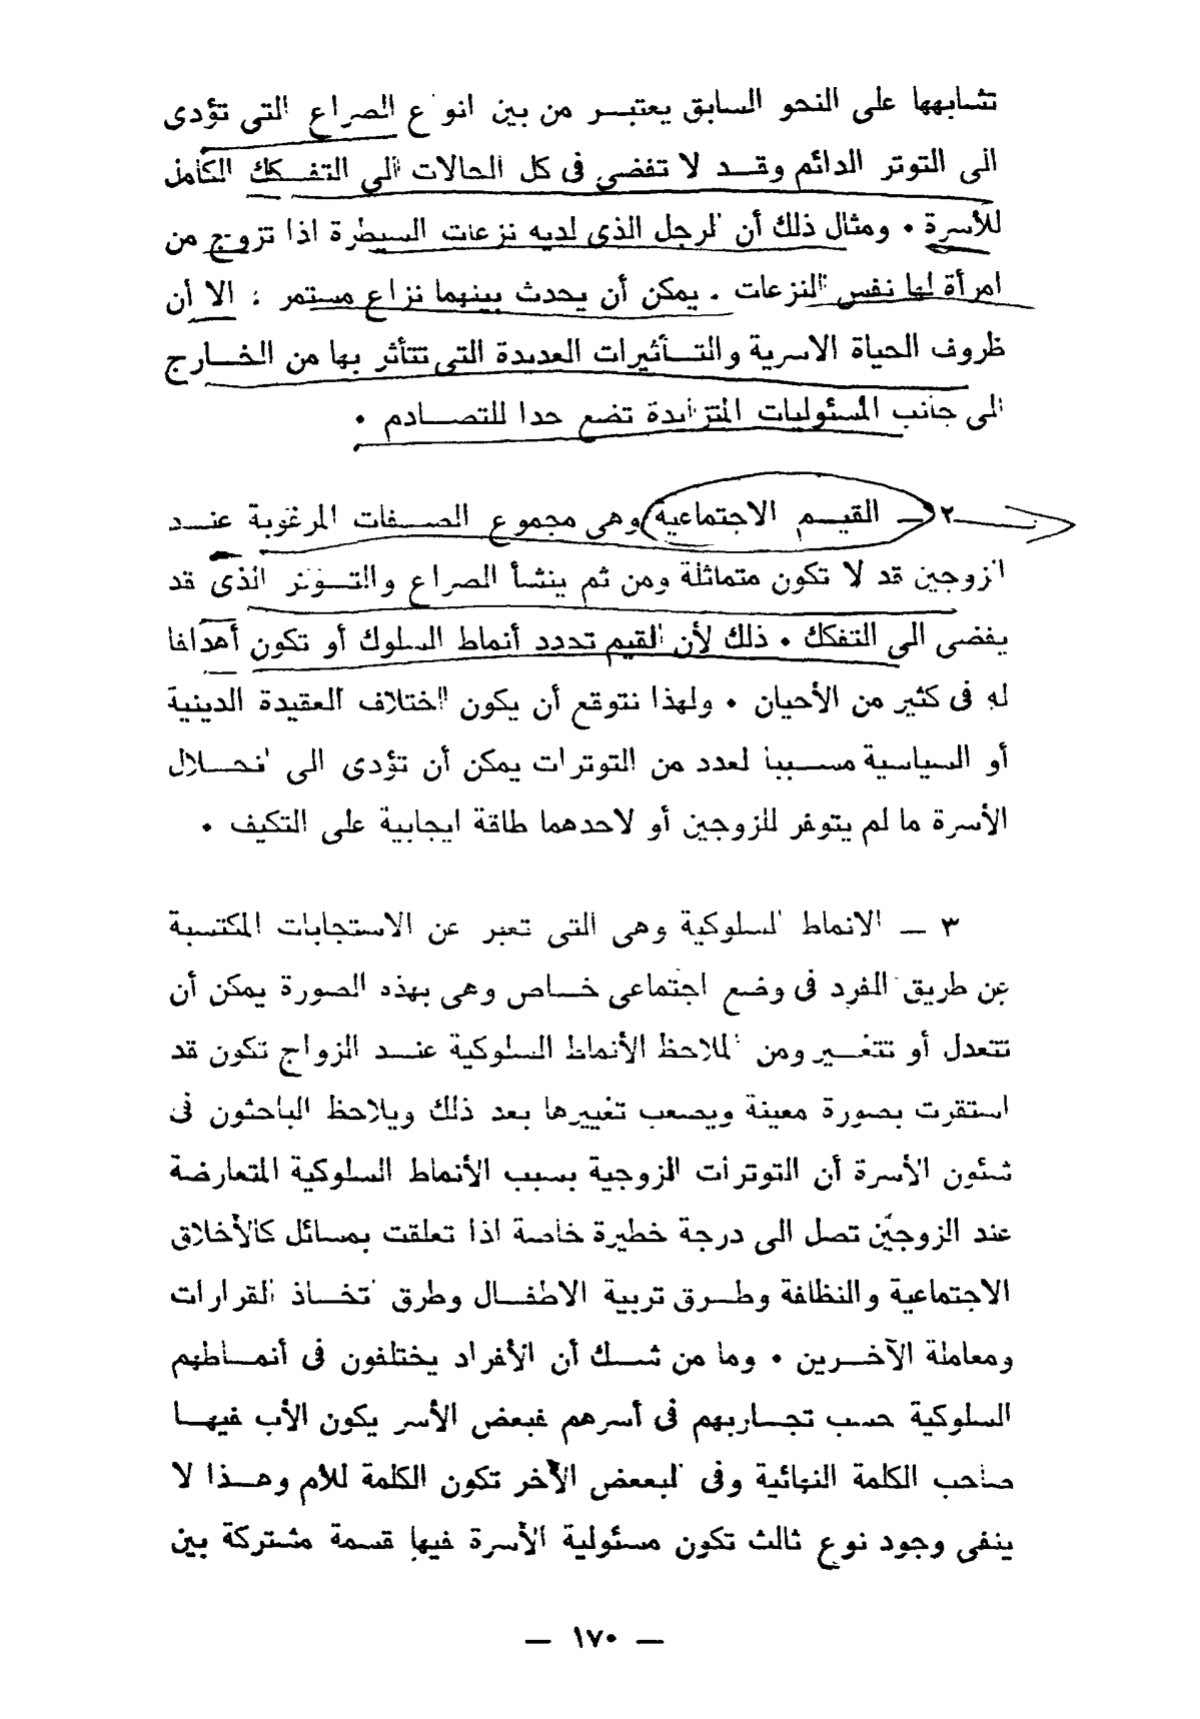 تشابهها على النحو السابق يعتبر من بين انواع الصراع التى تؤدى
الى التوتر الدائم وقد لا تفضى فى كل الحالات الى التفكك الكامل
للأسرة ٠ ومثال ذلك أن الرجل الذى لديه نزعات السيطرة اذا تزوج من
امرأة لها نفس النزعات ٠ يمكن أن يحدث بينهما نزاع مستمر : الا أن
ظروف الحياة الاسرية والتأثيرات العديدة التى تتأثر بها من الخارج
الى جانب المسئوليات المتزايدة تضع حدا للتصادم ٠
٢ ـ القيم الاجتماعية وهى مجموع الصفات المرغوبة عند
الزوجين قد لا تكون متماثلة ومن ثم ينشأ الصراع والتوتر الذى قد
يفضى الى التفكك ٠ ذلك لأن القيم تحدد أنماط السلوك أو تكون أهدافا
له فى كثير من الأحيان ٠ ولهذا نتوقع أن يكون اختلاف العقيدة الدينية
أو السياسية مسببا لعدد من التوترات يمكن أن تؤدى الى انحلال
الأسرة ما لم يتوفر للزوجين أو لاحدهما طاقة ايجابية على التكيف ٠
٣ ـ الانماط السلوكية وهى التى تعبر عن الاستجابات المكتسبة
عن طريق الفرد فى وضع اجتماعى خاص وهى بهذه الصورة يمكن أن
تتعدل أو تتغير ومن الملاحظ الأنماط السلوكية عند الزواج تكون قد
استقرت بصورة معينة ويصعب تغييرها بعد ذلك ويلاحظ الباحثون فى
شئون الأسرة أن التوترات الزوجية بسبب الأنماط السلوكية المتعارضة
عند الزوجين تصل الى درجة خطيرة خاصة اذا تعلقت بمسائل كالأخلاق
الاجتماعية والنظافة وطرق تربية الاطفال وطرق اتخاذ القرارات
ومعاملة الآخرين ٠ وما من شك أن الأفراد يختلفون فى أنماطهم
السلوكية حسب تجاربهم فى أسرهم فبعض الأسر يكون الأب فيها
صاحب الكلمة النهائية وفى البعض الأخر تكون الكلمة للأم وهذا لا
ينفى وجود نوع ثالث تكون مسئولية الأسرة فيها قسمة مشتركة بين
— ١٧٠ —